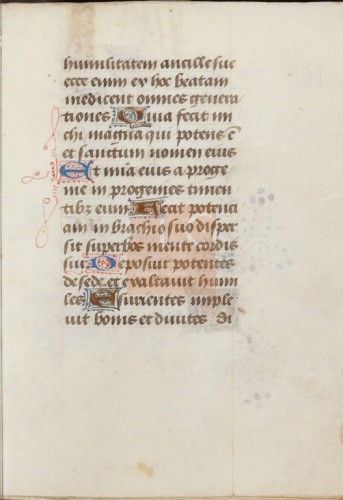 humilitatem ancille sue
ecce enim ex hoc beatam
me dicent omnes genera
tiones Quia fecit mi
chi magna qui potens ē
et sanctum nomen eius
Et mīa eius a proge
nie in progenies timen
tibꝫ eum Fecit potenci
am in brachio suo disper
sit superbos mente cordis
sui Deposuit potentes
de sede et exaltavit humi
les Esurientes imple
vit bonis et divites di